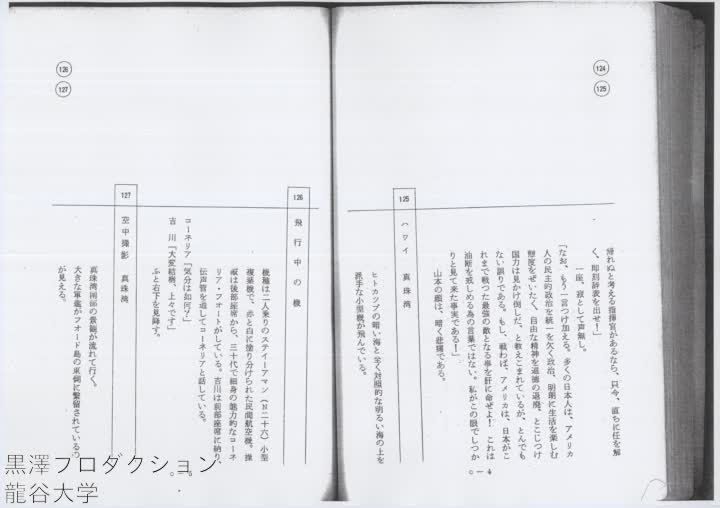 124
125
帰れぬと考える指揮官があるなら、只今、直ちに任を解
く、即刻辞表を出せ!」
一座、寂として声無し。
「なお、もう一言つけ加える。多くの日本人は、アメリカ
人の民主的政治を統一を欠く政治、明朗に生活を楽しむ
態度をぜいたく、自由な精神を道徳の退廃、とこじつけ
国力は見かけ倒しだ、と教えこまれているが、とんでも
ない誤りである。もし、戦わば、アメリカは、日本がこ
れまで戦つた最強の敵となる事を肝に命ぜよ! これは
油断を戒しめる為の言葉ではない。私がこの眼でしつか
りと見て来た事実である!」
山本の顔は、暗く悲痛である。
125 ハワイ 真珠湾
ヒトカツプの暗い海と全く対照的な明るい海の上を
派手な小型機が飛んでいる。
126
127
126 飛行中の機
機種は二人乗りのステイーアマン(N二十六)小型
複葉機で、赤と白に塗り分けられた民間航空機。操
縦は後部座席から、三十代で細身の魅力的なコーネ
リア・フオートがしている。吉川は前部座席に納り、
伝声管を通してコーネリアと話している。
コーネリア「気分は如何?」
吉川「大変結構、上々です」
ふと右下を見降す。
127 空中撮影 真珠湾
真珠湾南部の景観が流れて行く。
大きな軍艦がフオード島の東側に繋留されているの
が見える。
黒澤プロダクション
龍谷大学